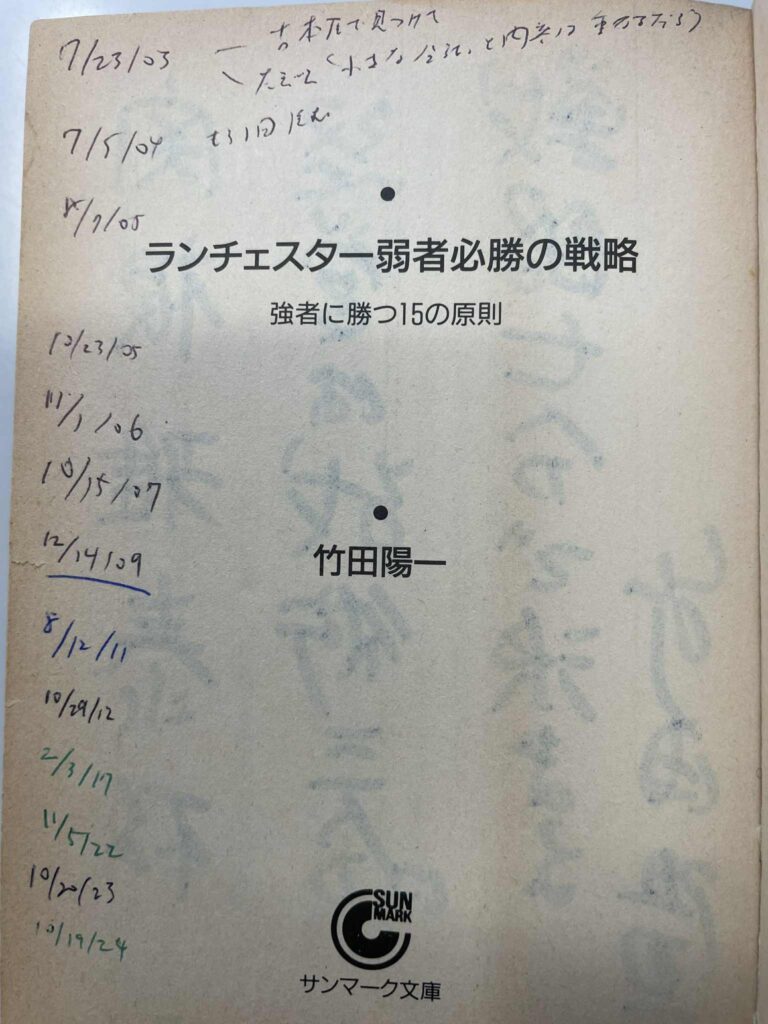 7/23/03 — 古本屋で見つけて
「小さな会社」と内容は
7/5/04 もう1回読む
/7/05
ランチェスター弱者必勝の戦略
強者に勝つ15の原則
10/23/05
11/1/06
10/15/07
12/14/09
竹田陽一
8/12/11
10/29/12
2/3/17
11/5/22
10/20/23
10/19/24
SUN
MARK
サンマーク文庫